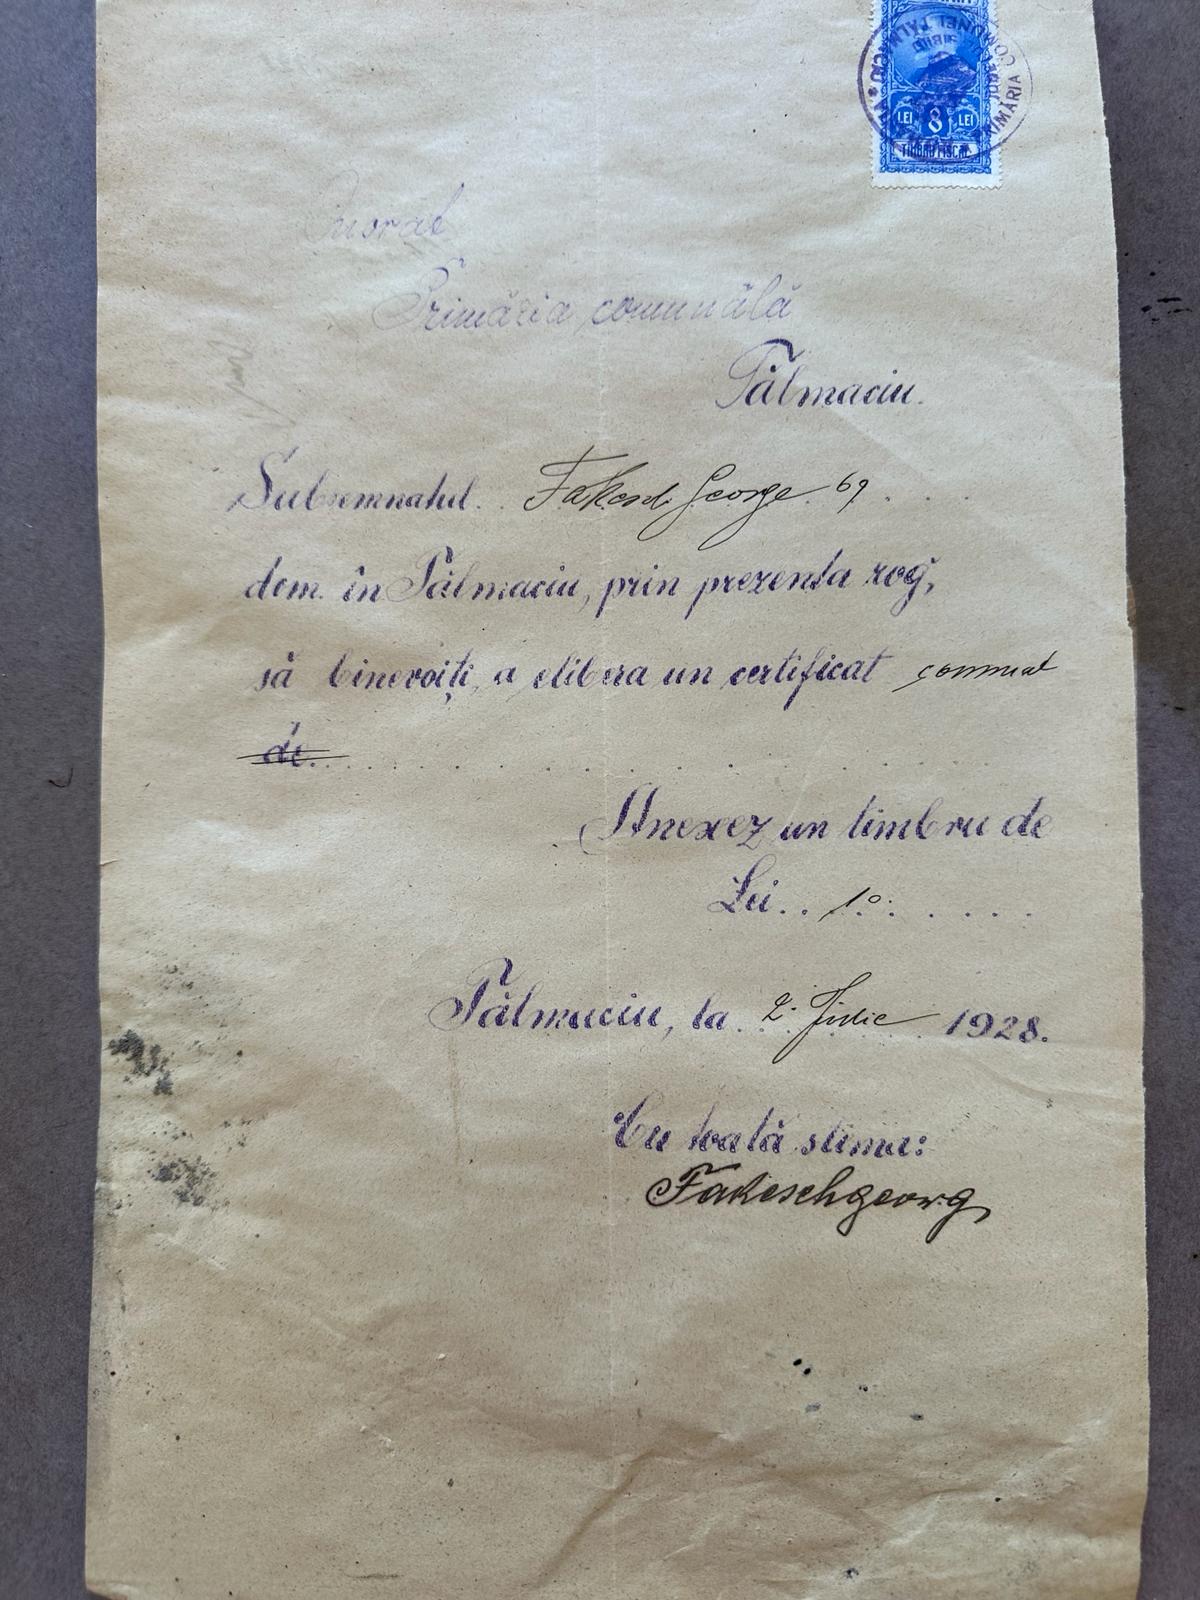 LEI 8 LEI
TIMBRU FISCAL
PRIMĂRIA COMUNEI TĂLMACIU
Onorat
Primăria comunălă
Tălmaciu.
Subsemnatul. . Fakesch George 69 . . .
dom. în Tălmaciu, prin prezenta rog,
să binevoiți, a elibera un certificat comunal
de. . . . . . . . . . . . . .
Anexez un timbru de
Lei. . 10. . . . . .
Tălmaciu, la . . 2. Julie 1928.
Cu toată stima:
Fakesch georg